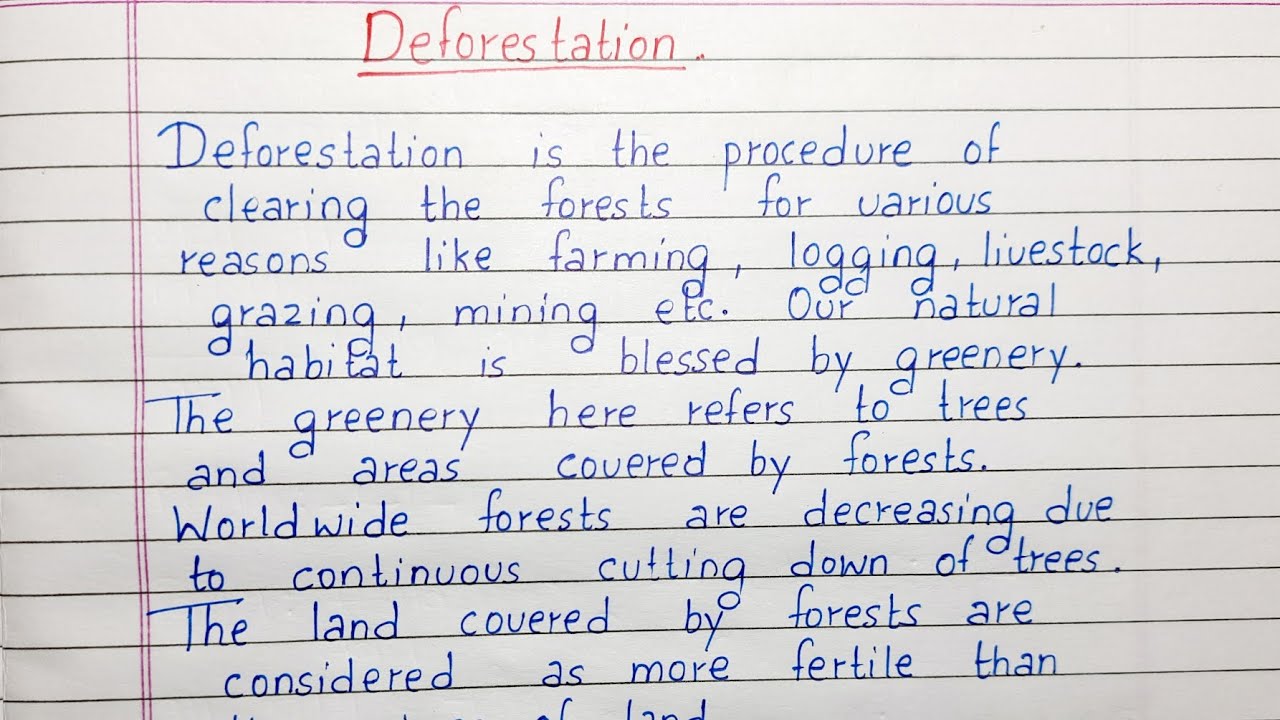 Deforestation.
Deforestation is the procedure of
clearing the forests for various
reasons like farming, logging, livestock,
grazing, mining etc. Our natural
habitat is blessed by greenery.
The greenery here refers to trees
and areas covered by forests.
Worldwide forests are decreasing due
to continuous cutting down of trees.
The land covered by forests are
considered as more fertile than
of land